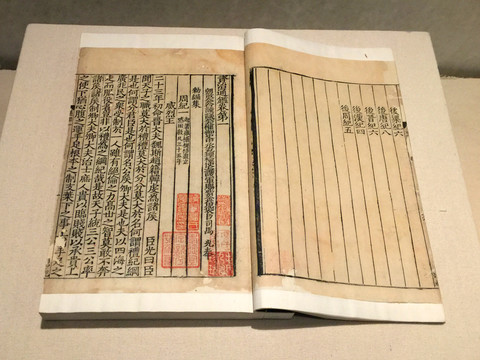 後梁紀六
後唐紀八
後晉紀六
後漢紀四
後周紀五
資治通鑑卷第一
司馬 光奉
勑編集
周紀
起著雍攝提格盡玄
黓困敦凡三十五年
威烈王
二十三年初命晉大夫魏斯趙籍韓虔為諸侯 臣光曰臣
聞天子之職莫大於禮禮莫大於分分莫大於名何謂禮紀綱
是也何謂分君臣是也何謂名公侯卿大夫是也夫以四海之
廣兆民之衆受制於一人雖有絕倫之力高世之智莫敢不奔
走而服役者豈非以禮為之綱紀哉是故天子統三公三公率
諸侯諸侯制卿大夫卿大夫治士庶人貴以臨賤賤以承貴上
之使下猶心腹之運手足根本之制支葉下之事上猶手足之